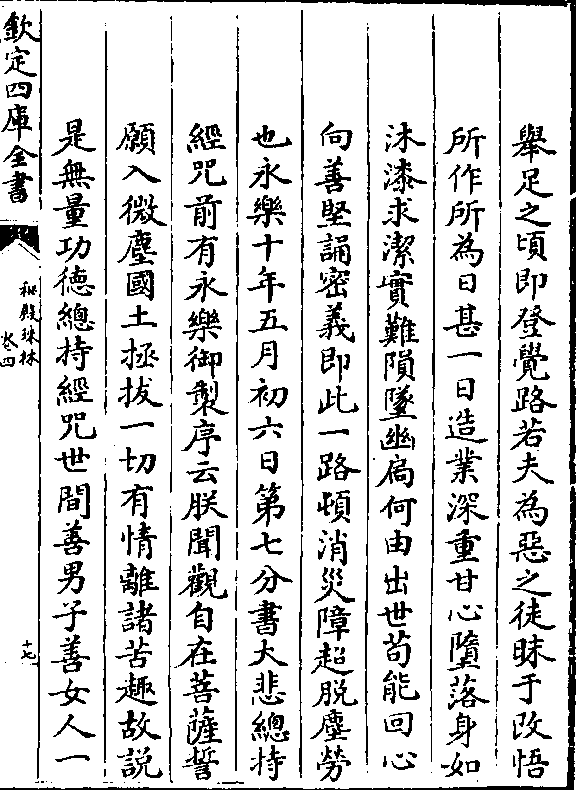 舉足之頃即登覺路若夫為惡之徒昧于改悟
所作所為日甚一日造業深重甘心墮落身如
沐漆求潔實難隕墜幽扃何由出世茍能回心
向善堅誦密義即此一路頓消災障超脫塵勞
也永樂十年五月初六日第七分書大悲總持
經咒前有永樂御製序云朕聞觀自在菩薩誓
願入微塵國土拯拔一切有情離諸苦趣故説
是無量功德總持經咒世間善男子善女人一
欽定四庫全書
秘殿珠林
卷四
十七